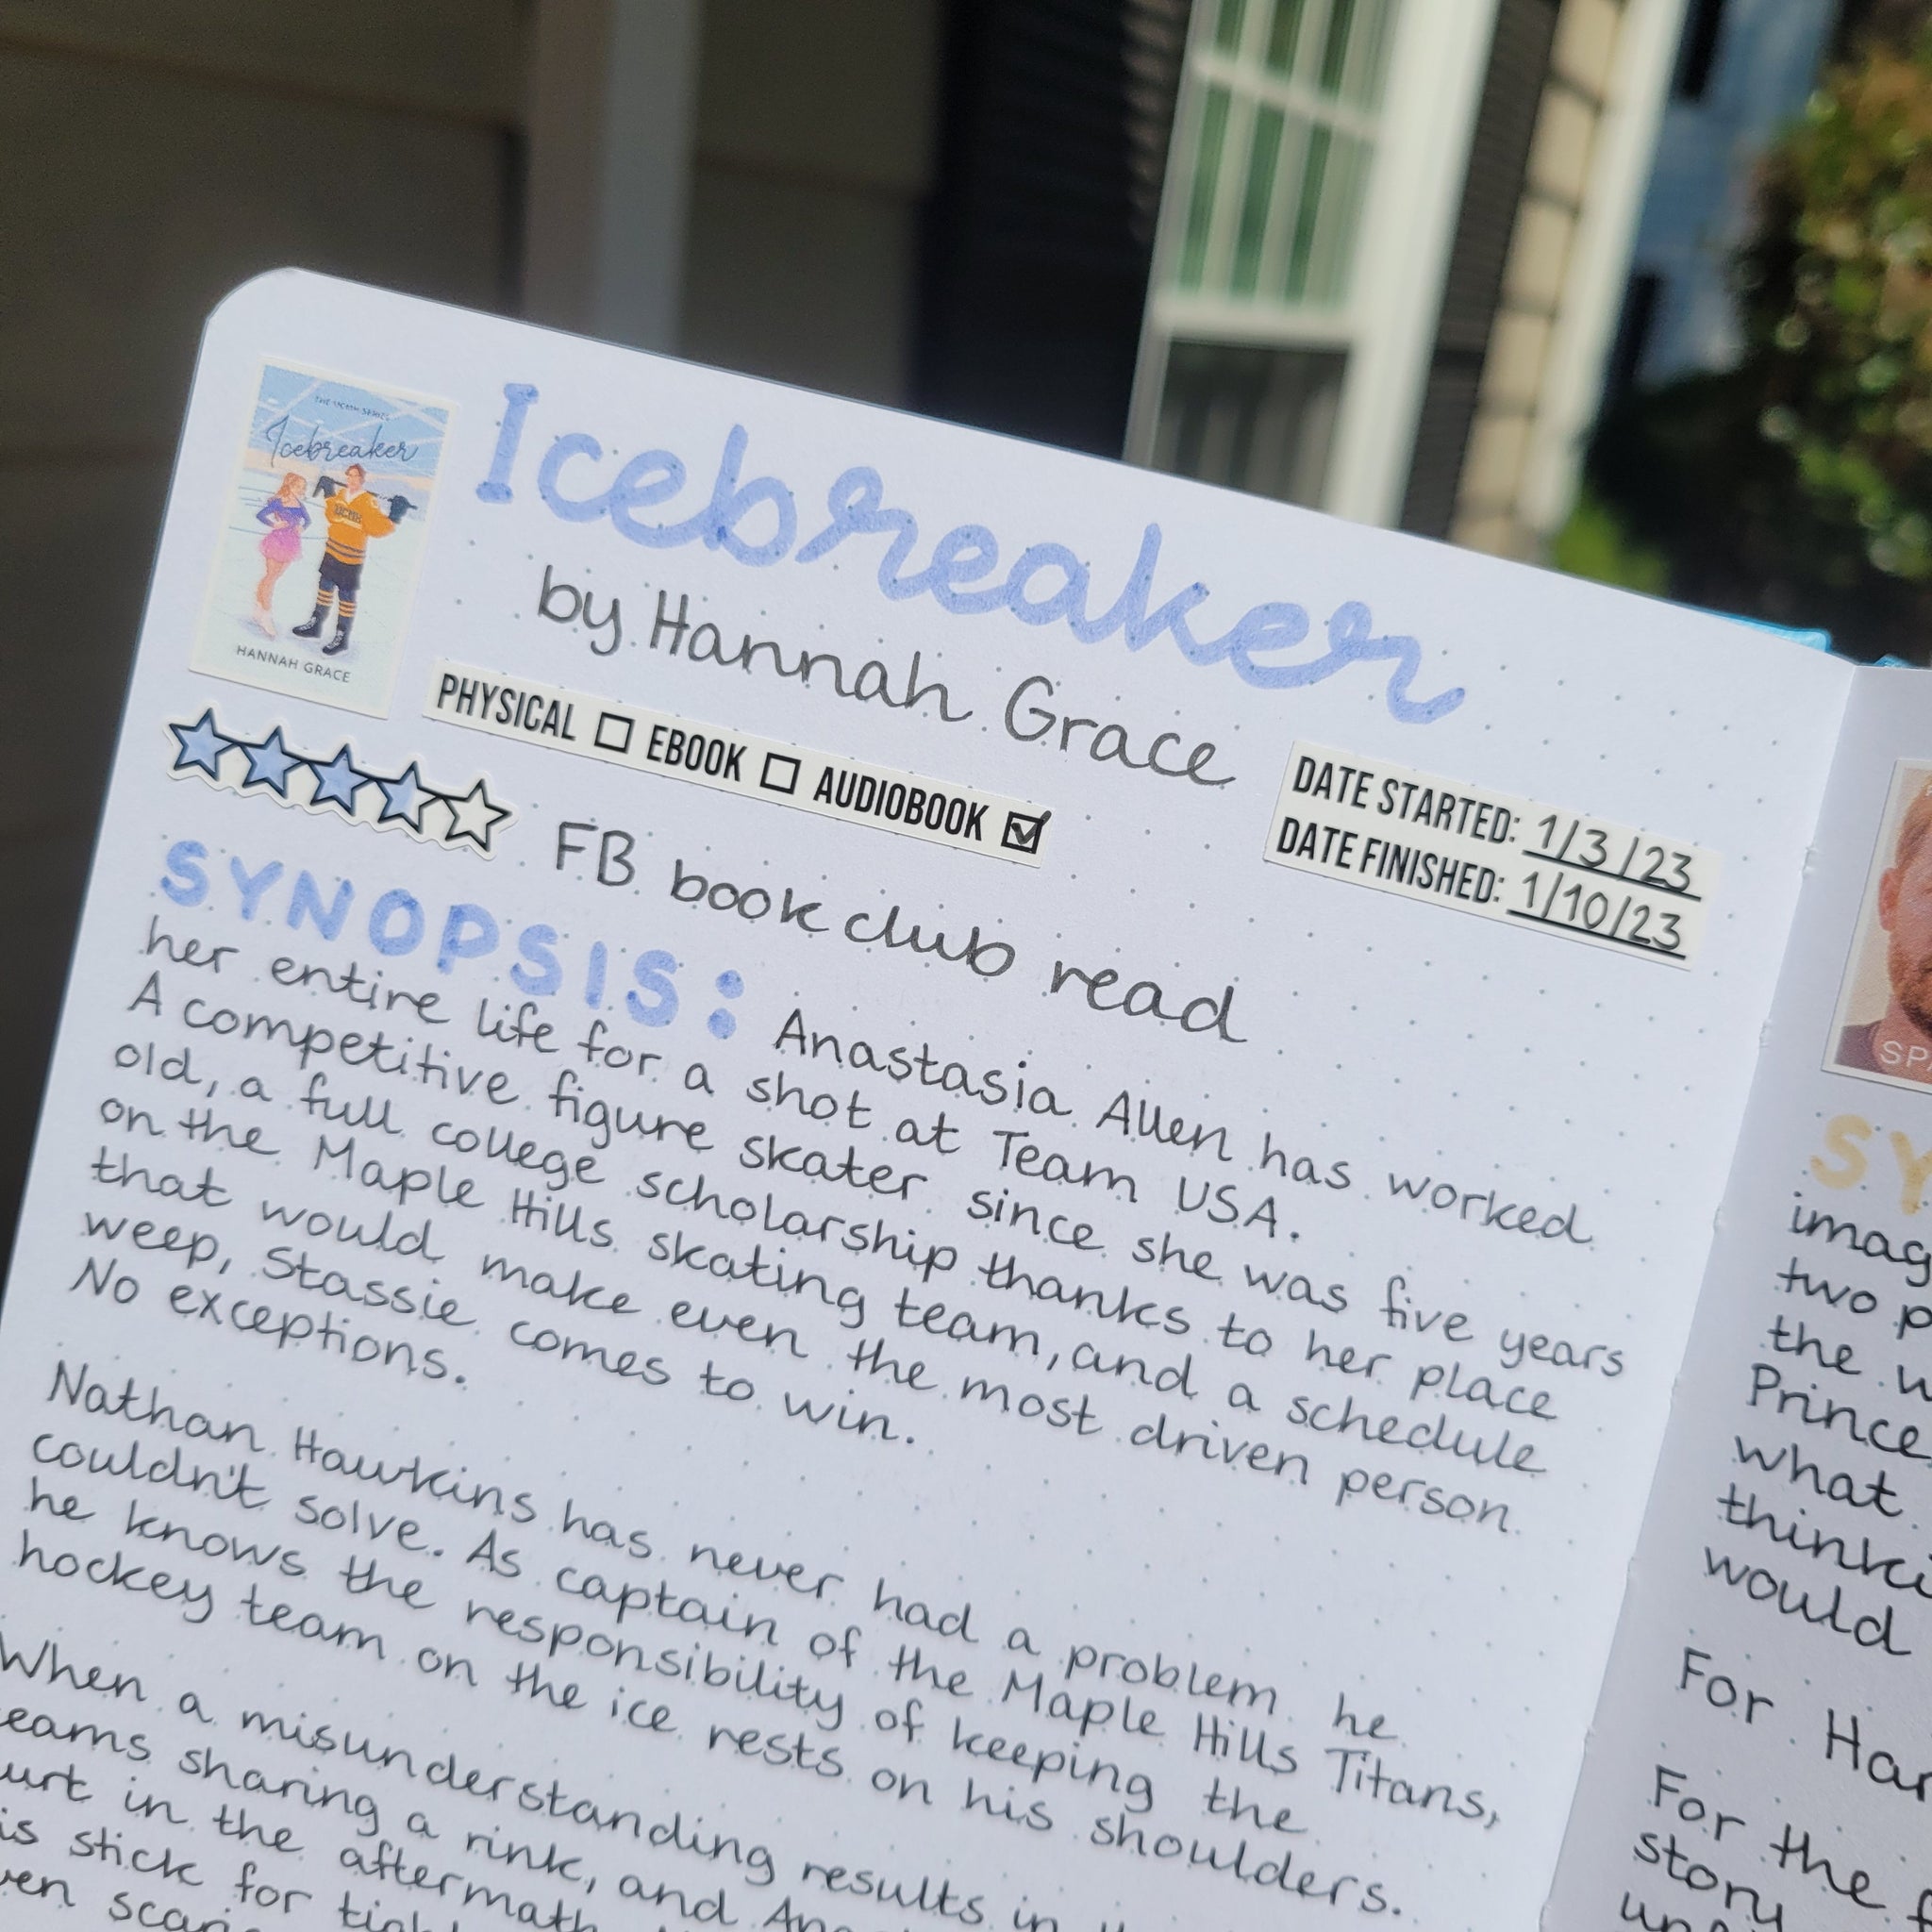 Icebreaker
HANNAH GRACE
Icebreaker
by Hannah Grace
PHYSICAL ☐ EBOOK ☐ AUDIOBOOK ☑
DATE STARTED: 1/3/23
DATE FINISHED: 1/10/23
FB book club read
SYNOPSIS: Anastasia Allen has worked
her entire life for a shot at Team USA.
A competitive figure skater since she was five years
old, a full college scholarship thanks to her place
on the Maple Hills skating team, and a schedule
that would make even the most driven person
weep, Stassie comes to win.
No exceptions.
Nathan Hawkins has never had a problem he
couldn't solve. As captain of the Maple Hills Titans,
he knows the responsibility of keeping the
hockey team on the ice rests on his shoulders.
When a misunderstanding results in
sharing a rink, and
in the aftermath
stick for
SY
two
the
Prince
what
would
For
For the
story